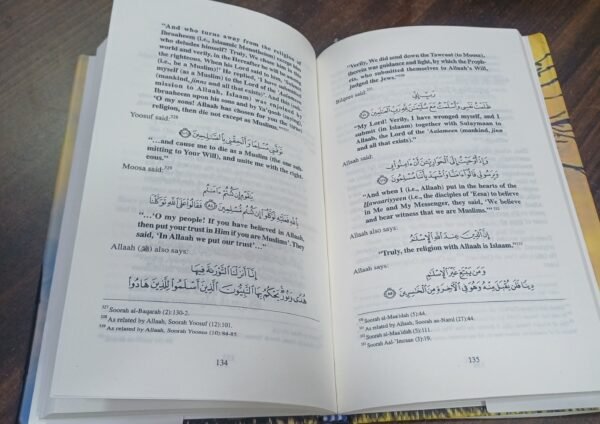 "And who turns away from the religion of
Ibraaheem (i.e., Islaamic Monotheism) except he
who deludes himself? Truly, We chose him in this
world and verily, in the Hereafter he will be among
the righteous. When his Lord said to him, 'Submit
(i.e., be a Muslim)!' He replied, 'I have submitted
myself (as a Muslim) to the Lord of the 'Aalameen
(mankind, jinns and all that exists).' And this (sub-
mission to Allaah, Islaam) was enjoined by
Ibraaheem upon his sons and by Ya'qoob (saying):
'O my sons! Allaah has chosen for you the (true)
religion, then die not except as Muslims.'"
Yoosuf said:328
تَوَفَّنِي مُسْلِمًا وَأَلْحِقْنِي بِالصَّالِحِينَ
"…and cause me to die as a Muslim (the one sub-
mitting to Your Will), and unite me with the right-
eous."
Moosa said:329
يَٰقَوْمِ إِن كُنتُمْ ءَامَنتُم
بِٱللَّهِ فَعَلَيْهِ تَوَكَّلُوٓا۟ إِن كُنتُم مُّسْلِمِينَ فَقَالُوا۟ عَلَى ٱللَّهِ تَوَكَّلْنَا
"…'O my people! If you have believed in Allaah,
then put your trust in Him if you are Muslims'. They
said, 'In Allaah we put our trust'…"
Allaah (ﷻ) also says:
إِنَّآ أَنزَلْنَا ٱلتَّوْرَىٰةَ فِيهَا
هُدًى وَنُورٌ يَحْكُمُ بِهَا ٱلنَّبِيُّونَ ٱلَّذِينَ أَسْلَمُوا۟ لِلَّذِينَ هَادُوا۟
327 Soorah al-Baqarah (2):130-2.
328 As related by Allaah, Soorah Yoosuf (12):101.
329 As related by Allaah, Soorah Yoonus (10):84-85.
134
"Verily, We did send down the Tawraat (to Moosa),
therein was guidance and light, by which the Proph-
ets, who submitted themselves to Allaah's Will,
judged the Jews."
Bilqees said:
رَبِّ إِنِّي
ظَلَمْتُ نَفْسِي وَأَسْلَمْتُ مَعَ سُلَيْمَٰنَ لِلَّهِ رَبِّ ٱلْعَٰلَمِينَ
"My Lord! Verily, I have wronged myself, and I
submit (in Islaam) together with Sulaymaan to
Allaah, the Lord of the 'Aalameen (mankind, jinn
and all that exists)."
Allaah said:
وَإِذْ أَوْحَيْتُ إِلَى ٱلْحَوَارِيِّـۧنَ أَنْ ءَامِنُوا۟ بِي
وَبِرَسُولِي قَالُوٓا۟ ءَامَنَّا وَٱشْهَدْ بِأَنَّنَا مُسْلِمُونَ
"And when I (i.e., Allaah) put in the hearts of the
Hawaariyyeen (i.e., the disciples of 'Eesa) to believe
in Me and My Messenger, they said, 'We believe
and bear witness that we are Muslims.'" 332
Allaah also says:
إِنَّ ٱلدِّينَ عِندَ ٱللَّهِ ٱلْإِسْلَٰمُ
"Truly, the religion with Allaah is Islaam."333
Allaah says:
وَمَن يَبْتَغِ غَيْرَ ٱلْإِسْلَٰمِ
دِينًا فَلَن يُقْبَلَ مِنْهُ وَهُوَ فِي ٱلْءَاخِرَةِ مِنَ ٱلْخَٰسِرِينَ
330 Soorah al-Maa'idah (5):44.
331 As related by Allaah, Soorah an-Naml (27):44.
332 Soorah al-Maa'idah (5):111.
333 Soorah Aal-'Imraan (3):19.
135